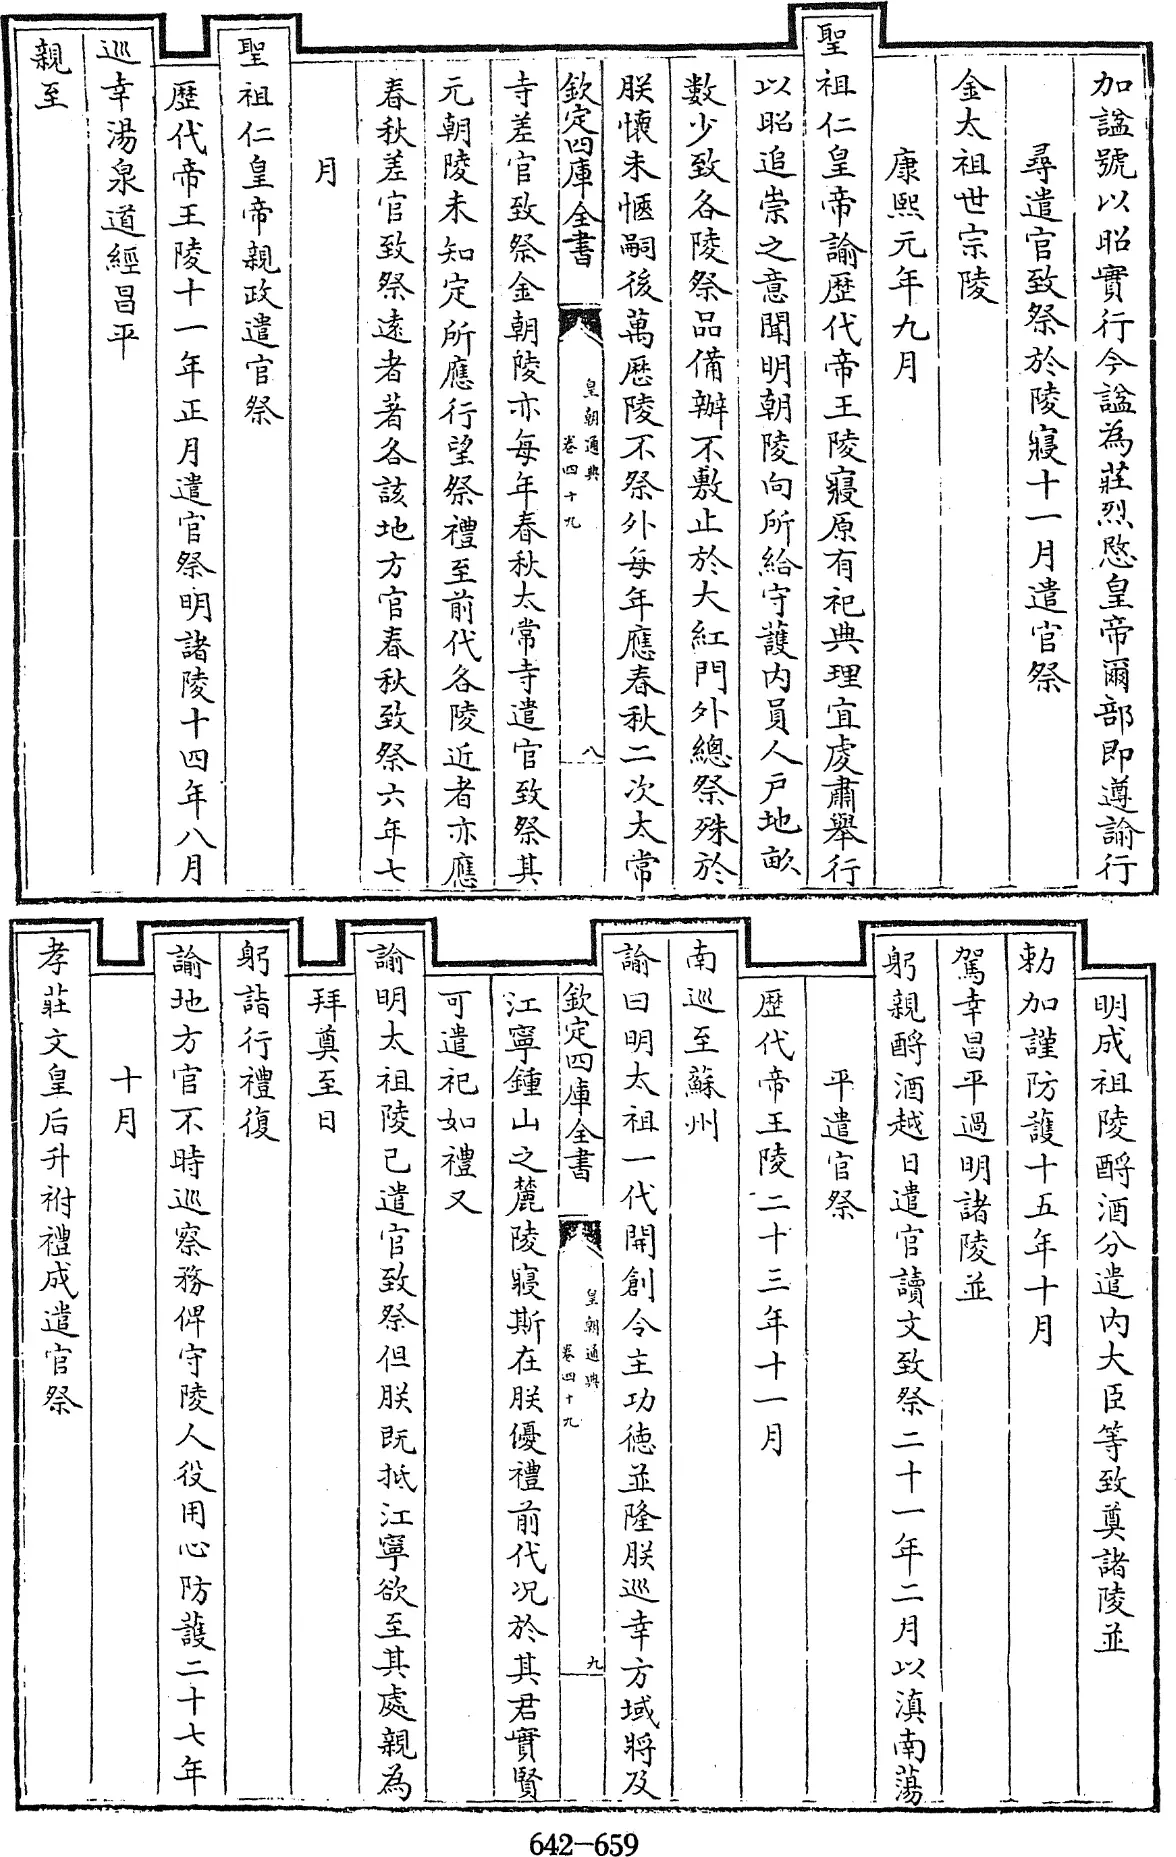 加諡號以昭實行今諡為莊烈愍皇帝爾部即遵諭行
尋遣官致祭於陵寢十一月遣官祭
金太祖世宗陵
康熙元年九月
聖祖仁皇帝諭歷代帝王陵寢原有祀典理宜虔肅舉行
以昭追崇之意聞明朝陵向所給守護内員人戶地畝
數少致各陵祭品備辦不敷止於大紅門外總祭殊於
朕懷未愜嗣後萬歷陵不祭外每年應春秋二次太常
欽定四庫全書
皇朝通典
卷四十九
八
寺差官致祭金朝陵亦每年春秋太常寺遣官致祭其
元朝陵未知定所應行望祭禮至前代各陵近者亦應
春秋差官致祭遠者著各該地方官春秋致祭六年七
月
聖祖仁皇帝親政遣官祭
歷代帝王陵十一年正月遣官祭明諸陵十四年八月
巡幸湯泉道經昌平
親至
明成祖陵酹酒分遣内大臣等致奠諸陵並
勅加謹防護十五年十月
駕幸昌平過明諸陵並
躬親酹酒越日遣官讀文致祭二十一年二月以滇南蕩
平遣官祭
歷代帝王陵二十三年十一月
南巡至蘇州
諭曰明太祖一代開創令主功德並隆朕巡幸方域將及
欽定四庫全書
皇朝通典
卷四十九
九
江寧鍾山之麓陵寢斯在朕優禮前代况於其君實賢
可遣祀如禮又
諭明太祖陵已遣官致祭但朕既抵江寧欲至其處親為
拜奠至日
躬詣行禮復
諭地方官不時巡察務俾守陵人役用心防護二十七年
十月
孝莊文皇后升祔禮成遣官祭
642-659